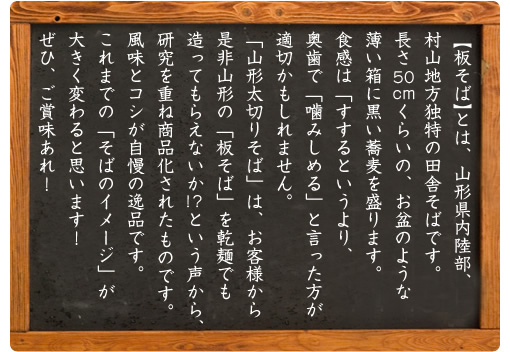 【板そば】とは、山形県内陸部、
村山地方独特の田舎そばです。
長さ50cmくらいの、お盆のような
薄い箱に黒い蕎麦を盛ります。
食感は「すするというより、
奥歯で「噛みしめる」と言った方が
適切かもしれません。
「山形太切りそば」は、お客様から
是非山形の「板そば」を乾麺でも
造ってもらえないか!?という声から、
研究を重ね商品化されたものです。
風味とコシが自慢の逸品です。
これまでの「そばのイメージ」が
大きく変わると思います！
ぜひ、ご賞味あれ！